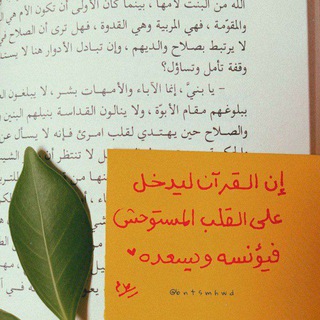 الله من البنت لأمها، بينما كان الأولى أن تكون الأم هي
والمقوّمة، فهي المربية وهي القدوة، فهل ترى أن الصلاح في
لا يرتبط بصلاح والديهم، وإن تبادل الأدوار هنا لا يست
وقفة تأمل وتساؤل؟
- يا بنيّ، إنما الآباء والأمهات بشر، لا يبلغون
ببلوغهم مقام الأبوّة، ولا ينالون القداسة بنيلهم البنين و
والصلاح حين يهتدي لقلب امرئ فإنه لا يسأل عن
لا تنتظر أن الشيب
إن القرآن ليدخل
على القلب المستوحش
فيؤنسه ويسعده
@bntsmhwd